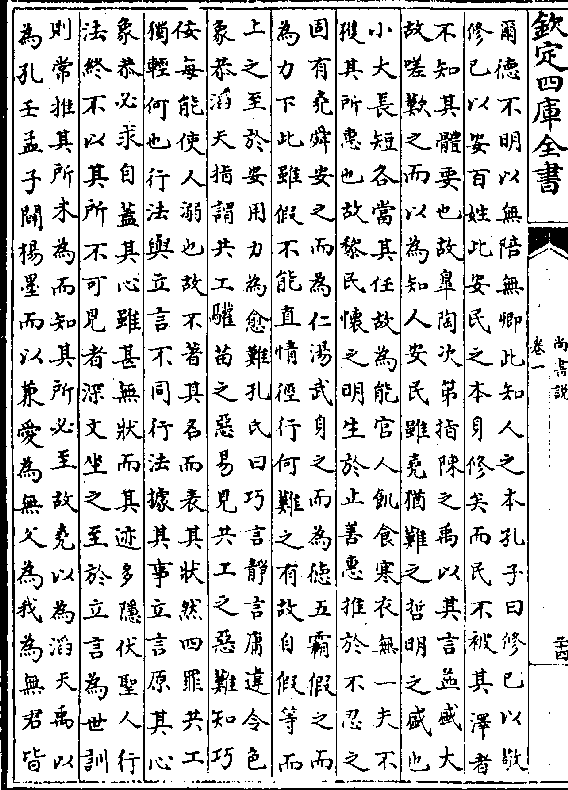 欽定四庫全書
尚書說
卷一
二十四
爾德不明以無陪無卿此知人之本孔子曰修已以敬
修已以安百姓此安民之本身修矣而民不被其澤者
不知其體要也故臯陶次第指陳之禹以其言益盛大
故嗟歎之而以為知人安民雖堯猶難之哲明之盛也
小大長短各當其任故為能官人飢食寒衣無一夫不
獲其所惠也故黎民懷之明生於止善惠推於不忍之
固有堯舜安之而為仁湯武身之而為德五霸假之而
為力下此雖假不能直情徑行何難之有故自假等而
上之至於安用力為愈難孔氏曰巧言靜言庸違令色
象恭滔天指謂共工驩苗之惡易見共工之惡難知巧
佞每能使人溺也故不著其名而表其狀然四罪共工
獨輕何也行法與立言不同行法據其事立言原其心
象恭必求自蓋其心雖甚無狀而其迹多隱伏聖人行
法終不以其所不可見者深文坐之至於立言為世訓
則常推其所未為而知其所必至故堯以為滔天禹以
為孔壬孟子闢楊墨而以兼愛為無父為我為無君皆